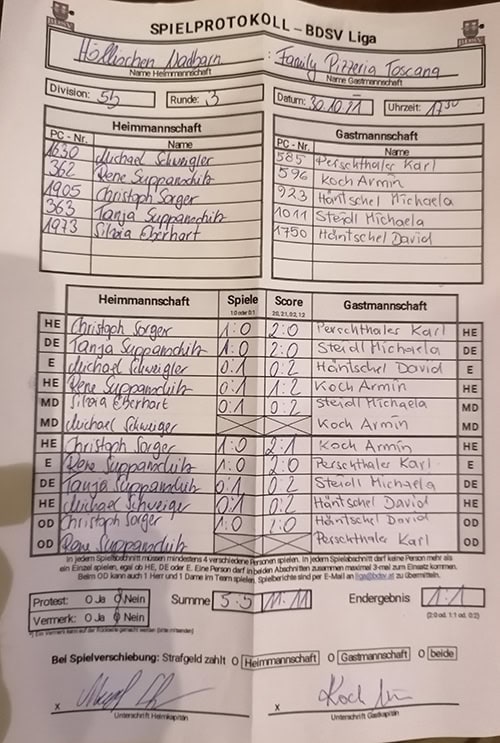 SPIELPROTOKOLL – BDSV Liga
Höllischen Nadbarn : Family Pizzeria Toscana
Name Heimmannschaft Name Gastmannschaft
Division: 5b Runde: 3 Datum: 30.10.21 Uhrzeit: 17:30
Heimmannschaft Gastmannschaft
PC - Nr. Name PC - Nr. Name
1630 Michael Schweigler 585 Perschthaler Karl
362 Rene Suppanschitz 596 Koch Armin
1905 Christoph Sorger 923 Häntschel Michaela
363 Tanja Suppanschitz 1011 Steidl Michaela
1973 Silvia Eberhart 1750 Häntschel David
Heimmannschaft Spiele Score Gastmannschaft
1:0 oder 0:1 20, 21, 02, 12
HE Christoph Sorger 1:0 2:0 Perschthaler Karl HE
DE Tanja Suppanschitz 1:0 2:0 Steidl Michaela DE
E Michael Schweigler 0:1 0:2 Häntschel David E
HE Rene Suppanschitz 0:1 1:2 Koch Armin HE
MD Silvia Eberhart 0:1 0:2 Steidl Michaela MD
MD Michael Schweiger Koch Armin MD
HE Christoph Sorger 1:0 2:1 Koch Armin HE
E Rene Suppanschitz 1:0 2:0 Perschthaler Karl E
DE Tanja Suppanschitz 0:1 0:2 Steidl Michaela DE
HE Michael Schweiger 0:1 0:2 Häntschel David HE
OD Christoph Sorger 1:0 2:0 Häntschel David OD
OD Rene Suppanschitz Perschthaler Karl OD
In jedem Spielabschnitt müssen mindestens 4 verschiedene Personen spielen. In jedem Spielabschnitt darf keine Person mehr als
ein Einzel spielen, egal ob HE, DE oder E. Eine Person darf in beiden Abschnitten zusammen maximal 3-mal zum Einsatz kommen.
Beim OD kann auch 1 Herr und 1 Dame im Team spielen. Spielberichte sind per E-Mail an liga@bdsv.at zu übermitteln.
Protest: O Ja O Nein Summe 5:5 11:11 Endergebnis 1:1
Vermerk: O Ja O Nein (2:0 od. 1:1 od. 0:2)
*) Ein Vermerk kann auf der Rückseite gemacht werden (bitte mitsenden)
Bei Spielverschiebung: Strafgeld zahlt O Heimmannschaft O Gastmannschaft O beide
x x Koch
Unterschrift Heimkapitän Unterschrift Gastkapitän